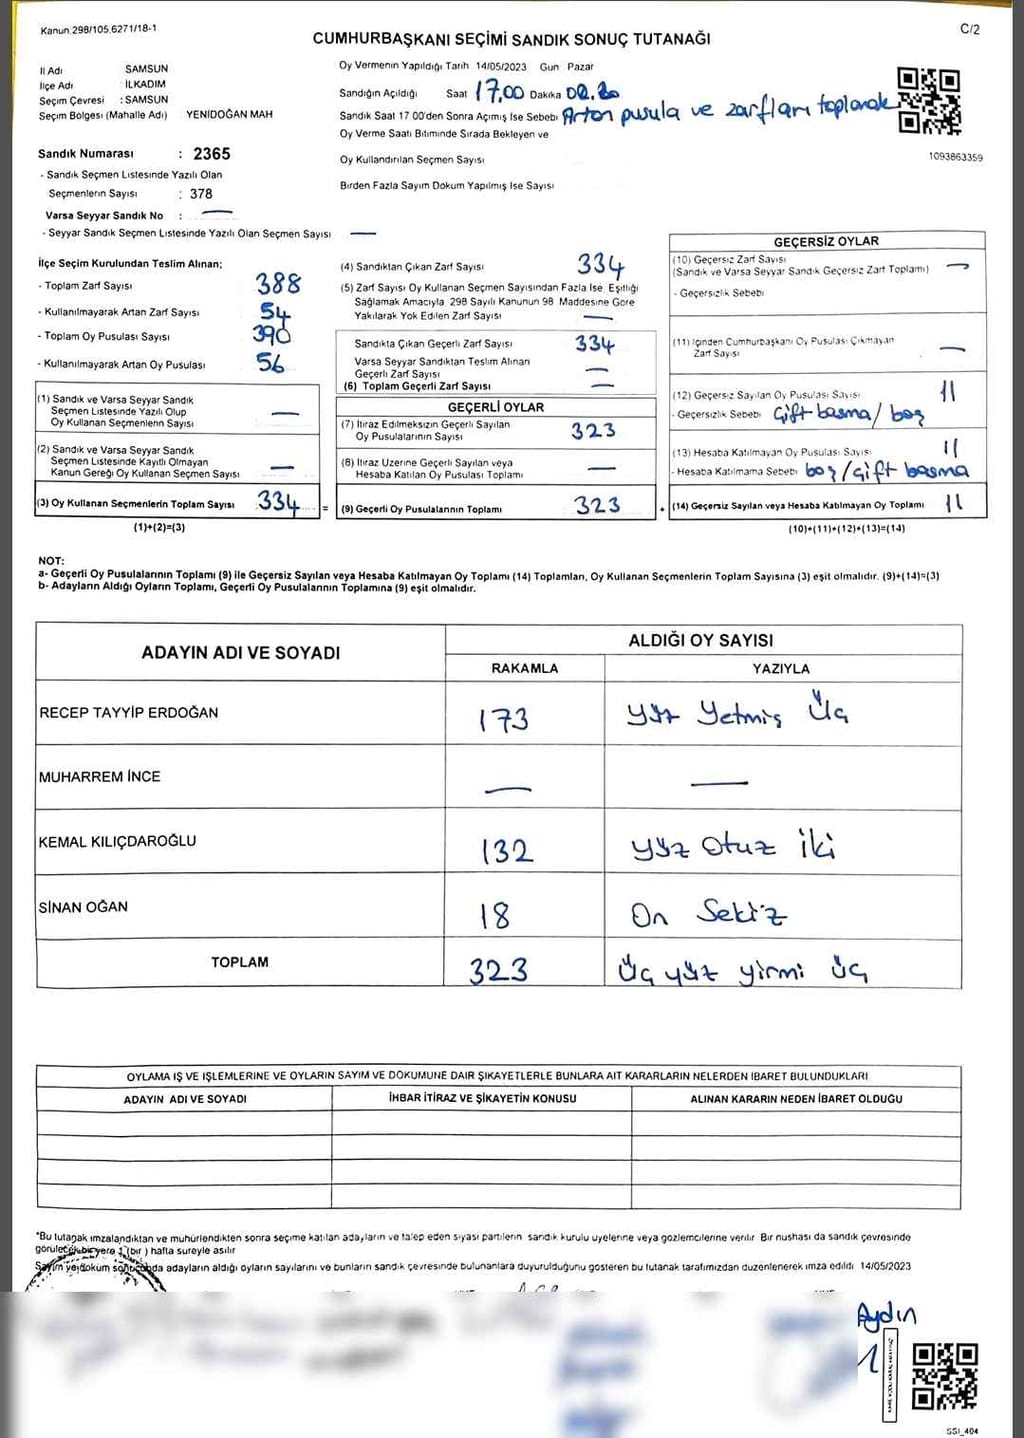 Kanun 298/105 6271/18-1
C/2
CUMHURBAŞKANI SEÇİMİ SANDIK SONUÇ TUTANAĞI
İl Adı SAMSUN
İlçe Adı İLKADIM
Seçim Çevresi : SAMSUN
Seçim Bölgesi (Mahalle Adı) YENİDOĞAN MAH
Sandık Numarası : 2365
- Sandık Seçmen Listesinde Yazılı Olan
Seçmenlerin Sayısı : 378
Varsa Seyyar Sandık No : —
- Seyyar Sandık Seçmen Listesinde Yazılı Olan Seçmen Sayısı —
Oy Vermenin Yapıldığı Tarih 14/05/2023 Gün Pazar
Sandığın Açıldığı Saat 17.00 Dakika
Sandık Saat 17 00'den Sonra Açımış İse Sebebi Artan pusula ve zarfları toplanarak
Oy Verme Saati Bitiminde Sırada Bekleyen ve
Oy Kullandırılan Seçmen Sayısı
Birden Fazla Sayım Döküm Yapılmış İse Sayısı
1093863359
İlçe Seçim Kurulundan Teslim Alınan;
- Toplam Zarf Sayısı 388
- Kullanılmayarak Artan Zarf Sayısı 54
- Toplam Oy Pusulası Sayısı 390
- Kullanılmayarak Artan Oy Pusulası 56
(1) Sandık ve Varsa Seyyar Sandık
Seçmen Listesinde Yazılı Olup
Oy Kullanan Seçmenlerin Sayısı —
(2) Sandık ve Varsa Seyyar Sandık
Seçmen Listesinde Kayıtlı Olmayan
Kanun Gereği Oy Kullanan Seçmen Sayısı —
(3) Oy Kullanan Seçmenlerin Toplam Sayısı 334 =
(1)+(2)=(3)
(4) Sandıktan Çıkan Zarf Sayısı 334
(5) Zarf Sayısı Oy Kullanan Seçmen Sayısından Fazla İse, Eşitliği
Sağlamak Amacıyla 298 Sayılı Kanunun 98 Maddesine Göre
Yakılarak Yok Edilen Zarf Sayısı —
Sandıkta Çıkan Geçerli Zarf Sayısı 334
Varsa Seyyar Sandıktan Teslim Alınan
Geçerli Zarf Sayısı —
(6) Toplam Geçerli Zarf Sayısı —
GEÇERLİ OYLAR
(7) İtiraz Edilmeksizin Geçerli Sayılan
Oy Pusulalarının Sayısı 323
(8) İtiraz Üzerine Geçerli Sayılan veya
Hesaba Katılan Oy Pusulası Toplamı —
(9) Geçerli Oy Pusulalarının Toplamı 323 +
GEÇERSİZ OYLAR
(10) Geçersiz Zarf Sayısı
(Sandık ve Varsa Seyyar Sandık Geçersiz Zarf Toplamı) —
- Geçersizlik Sebebi
(11) İçinden Cumhurbaşkanı Oy Pusulası Çıkmayan
Zarf Sayısı —
(12) Geçersiz Sayılan Oy Pusulası Sayısı 11
- Geçersizlik Sebebi Çift basma / boş
(13) Hesaba Katılmayan Oy Pusulası Sayısı 11
- Hesaba Katılmama Sebebi boş / Çift basma
(14) Geçersiz Sayılan veya Hesaba Katılmayan Oy Toplamı 11
(10)+(11)+(12)+(13)=(14)
NOT:
a- Geçerli Oy Pusulalarının Toplamı (9) ile Geçersiz Sayılan veya Hesaba Katılmayan Oy Toplamı (14) Toplamları, Oy Kullanan Seçmenlerin Toplam Sayısına (3) eşit olmalıdır. (9)+(14)=(3)
b- Adayların Aldığı Oyların Toplamı, Geçerli Oy Pusulalarının Toplamına (9) eşit olmalıdır.
ADAYIN ADI VE SOYADI ALDIĞI OY SAYISI
RAKAMLA YAZIYLA
RECEP TAYYİP ERDOĞAN 173 yüz yetmiş üç
MUHARREM İNCE — —
KEMAL KILIÇDAROĞLU 132 yüz otuz iki
SİNAN OĞAN 18 On Sekiz
TOPLAM 323 üç yüz yirmi üç
OYLAMA İŞ VE İŞLEMLERİNE VE OYLARIN SAYIM VE DÖKÜMÜNE DAİR ŞİKAYETLERLE BUNLARA AİT KARARLARIN NELERDEN İBARET BULUNDUKLARI
ADAYIN ADI VE SOYADI İHBAR İTİRAZ VE ŞİKAYETİN KONUSU ALINAN KARARIN NEDEN İBARET OLDUĞU
*Bu tutanak imzalandıktan ve mühürlendikten sonra seçime katılan adayların ve talep eden siyasi partilerin sandık kurulu üyelerine veya gözlemcilerine verilir Bir nushası da sandık çevresinde
görülecek bir yere 1 (bir ) hafta süreyle asılır
Sayım ve döküm sonucunda adayların aldığı oyların sayılarını ve bunların sandık çevresinde bulunanlara duyurulduğunu gösteren bu tutanak tarafımızdan düzenlenerek imza edildi 14/05/2023
Aydın
1
SSI_404